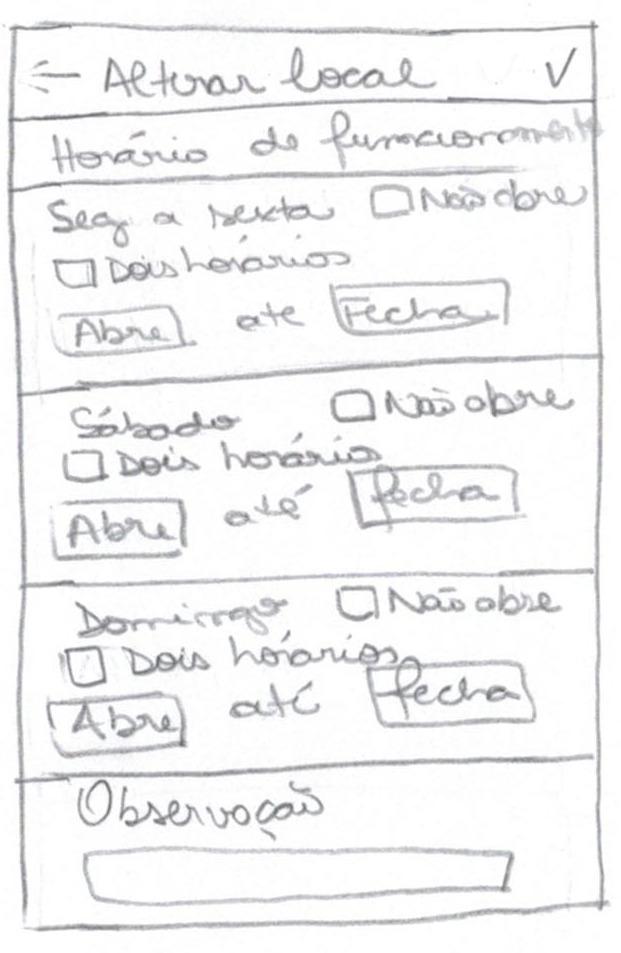 ← Alterar local ✓
Horário de funcionamento
Seg a sexta ☐ Não abre
☐ Dois horários
Abre até Fecha
Sábado ☐ Não abre
☐ Dois horários
Abre até fecha
Domingo ☐ Não abre
☐ Dois horários
Abre até fecha
Observação